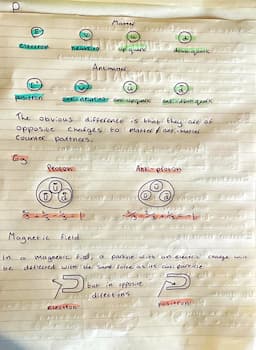 Matter
E ν u d
electron neutrino up quark down quark
Antimatter
positron anti-neutrino anti-up quark anti-down quark
The obvious difference is that they are of
opposite charges to matter / anti-matter
counter partners.
Eg
Proton Anti-proton
Magnetic field
In a magnetic field, a particle with an electric charge will
be deflected with the same force as its anti particle
but in opposite
directions
electron positron